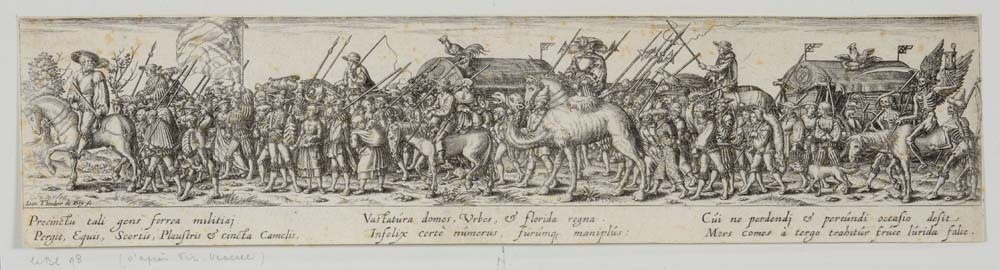 Ioan Theodor de Bry fe.
Procinctu tali gens ferrea militiaj
Pergit, Equis, Scortis, Plaustris & cincta Camelis.
Vastatura domos, Vrbes, & florida regna.
Infelix certè numerus, furumq; maniplus:
Cui ne perdendj & pereundi occasio desit
Mors comes à tergo trahitur fruce lurida falce.
(d'après